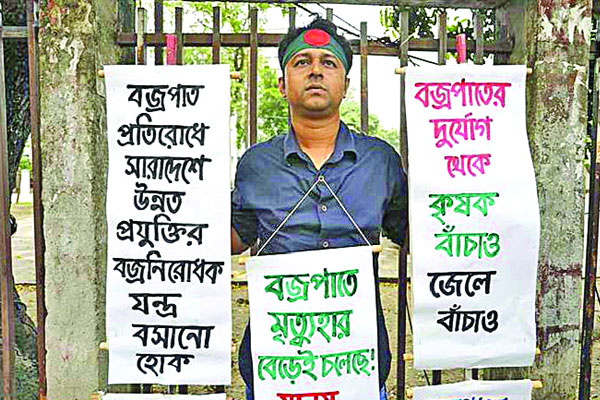 বজ্রপাত
প্রতিরোধে
সারাদেশে
উন্নত
প্রযুক্তির
বজ্রনিরোধক
যন্ত্র
বসানো
হোক
বজ্রপাতে
মৃত্যুহার
বেড়েই চলেছে!
বজ্রপাতের
দুর্যোগ
থেকে
কৃষক
বাঁচাও
জেলে
বাঁচাও